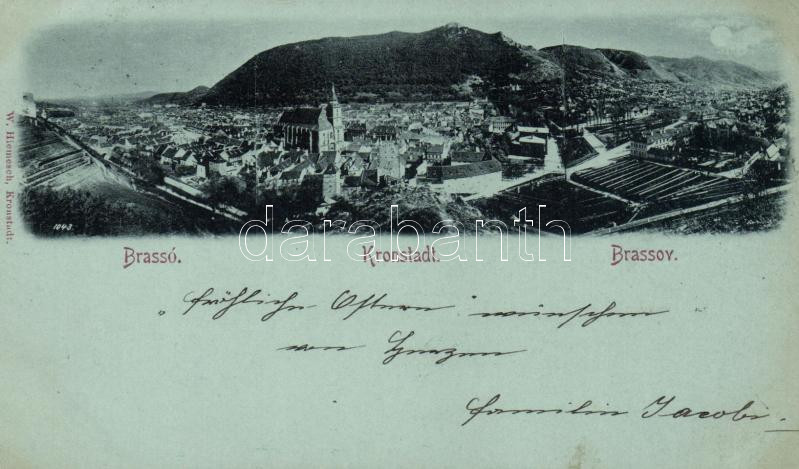 W. Hiemesch, Kronstadt.
1043
darabanth
Brassó. Kronstadt. Brassov.
„fröhliche Ostern" wünschen
von Herzen
Familie Jacobi.